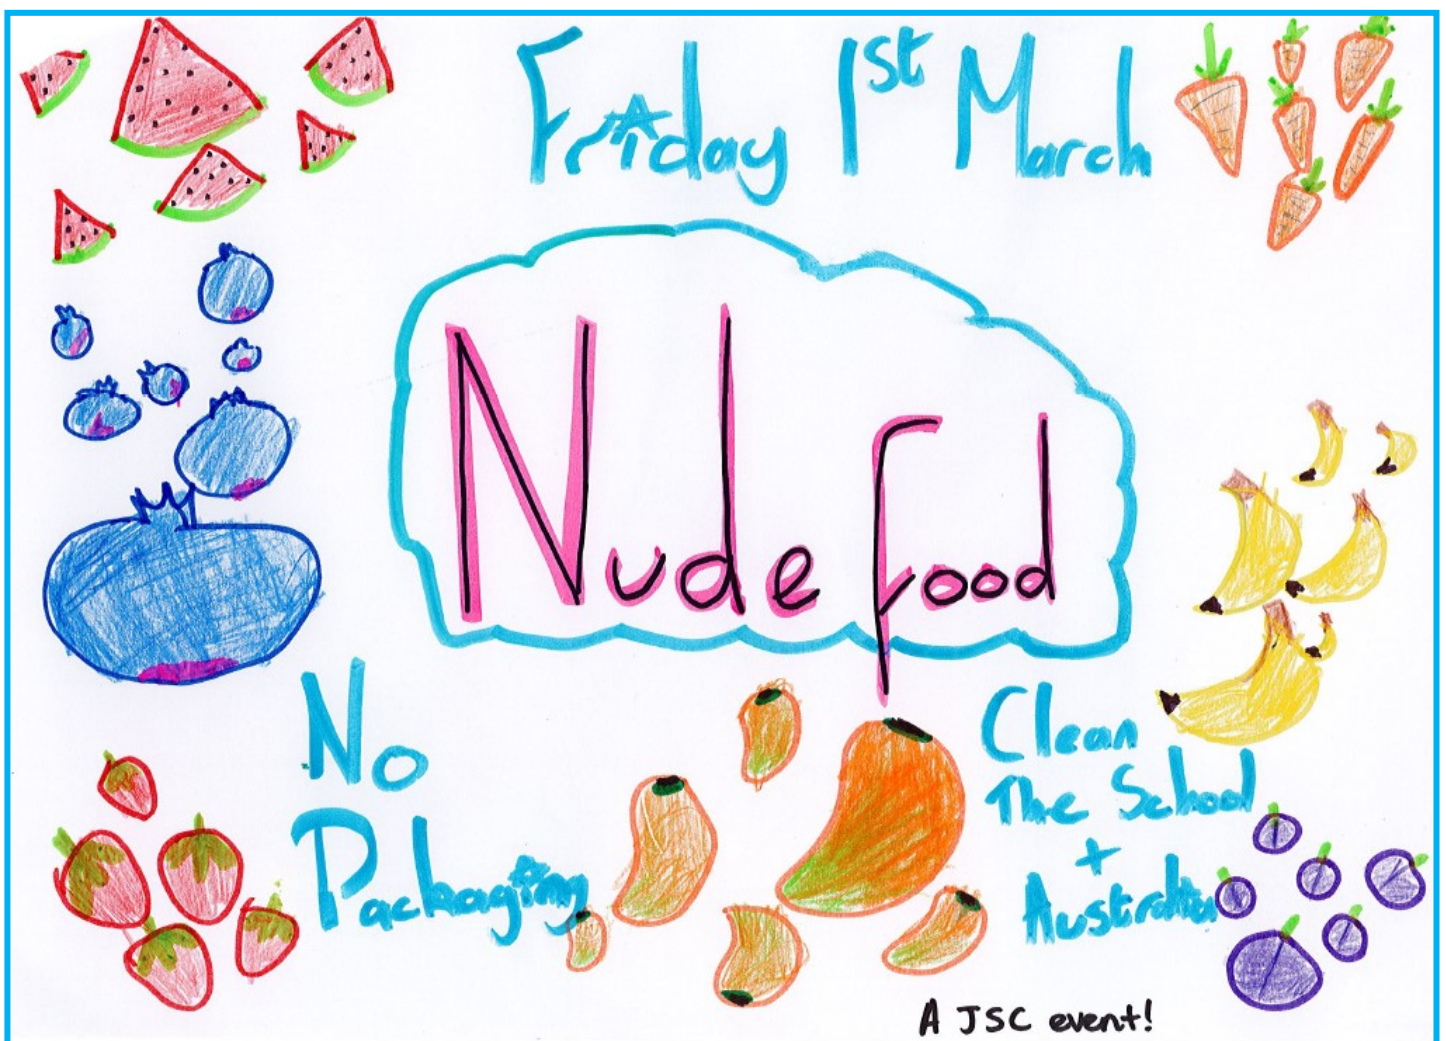 Friday 1st March
Nude food
No
Packaging
Clean
The School
+
Australia
A JSC event!